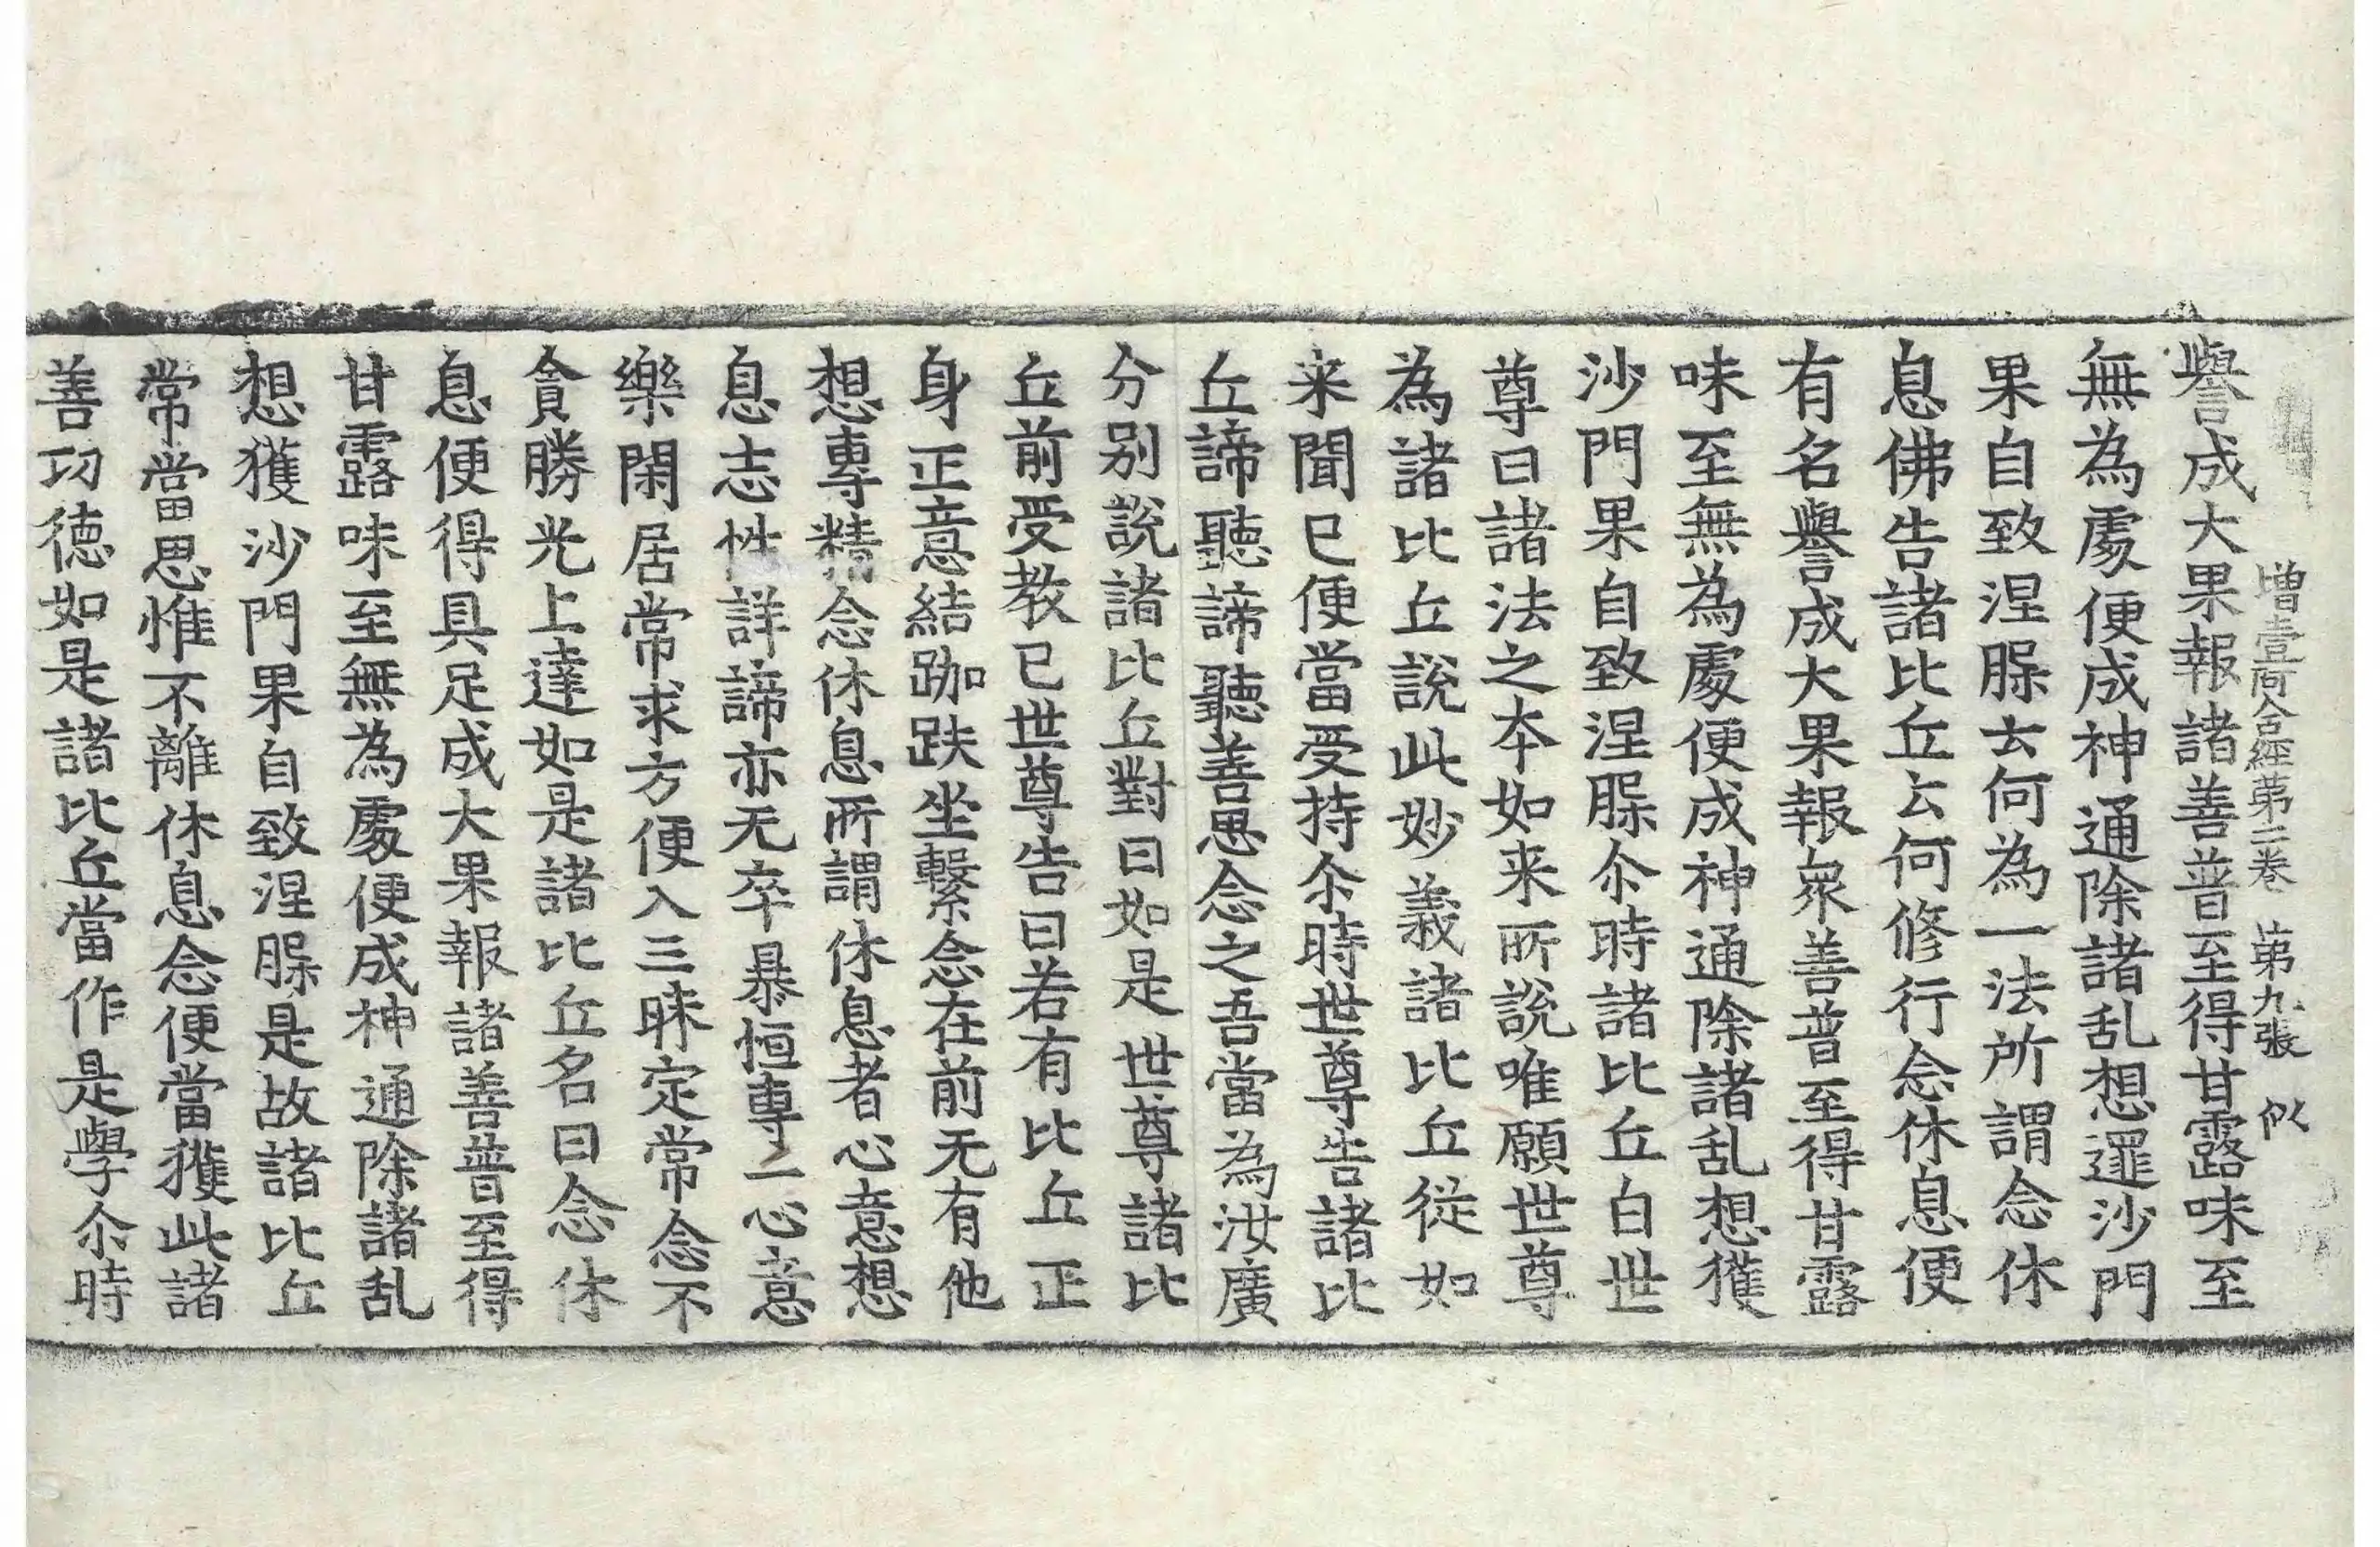 增壹阿含經第二卷 第九張 似
譽成大果報諸善普至得甘露味至
無為處便成神通除諸乱想逮沙門
果自致涅槃云何為一法所謂念休
息佛告諸比丘云何修行念休息便
有名譽成大果報衆善普至得甘露
味至無為處便成神通除諸乱想獲
沙門果自致涅槃尒時諸比丘白世
尊曰諸法之本如来所說唯願世尊
為諸比丘說此妙義諸比丘從如
来聞已便當受持尒時世尊告諸比
丘諦聽諦聽善思念之吾當為汝廣
分别說諸比丘對曰如是世尊諸比
丘前受教已世尊告曰若有比丘正
身正意結跏趺坐繫念在前无有他
想專精念休息所謂休息者心意想
息志性詳諦亦无卒暴恒專一心意
樂閑居常求方便入三昧定常念不
貪勝光上達如是諸比丘名曰念休
息便得具足成大果報諸善普至得
甘露味至無為處便成神通除諸乱
想獲沙門果自致涅槃是故諸比丘
常當思惟不離休息念便當獲此諸
善功德如是諸比丘當作是學尒時